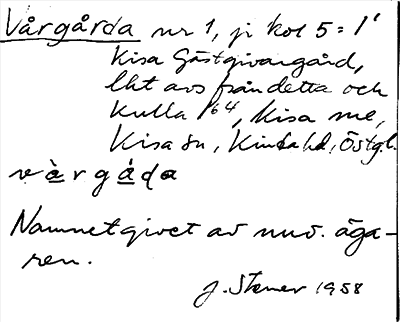 Vårgårda nr 1, jr kol 5 = 1¹
Kisa Gästgivargård,
lht avs från detta och
Kulla 1⁶⁴, Kisa sne,
Kisa sn, Kinda hd, Östg.l.
vàrgáda
Namnet givet av nuv. äga-
ren.
J. Stener 1958